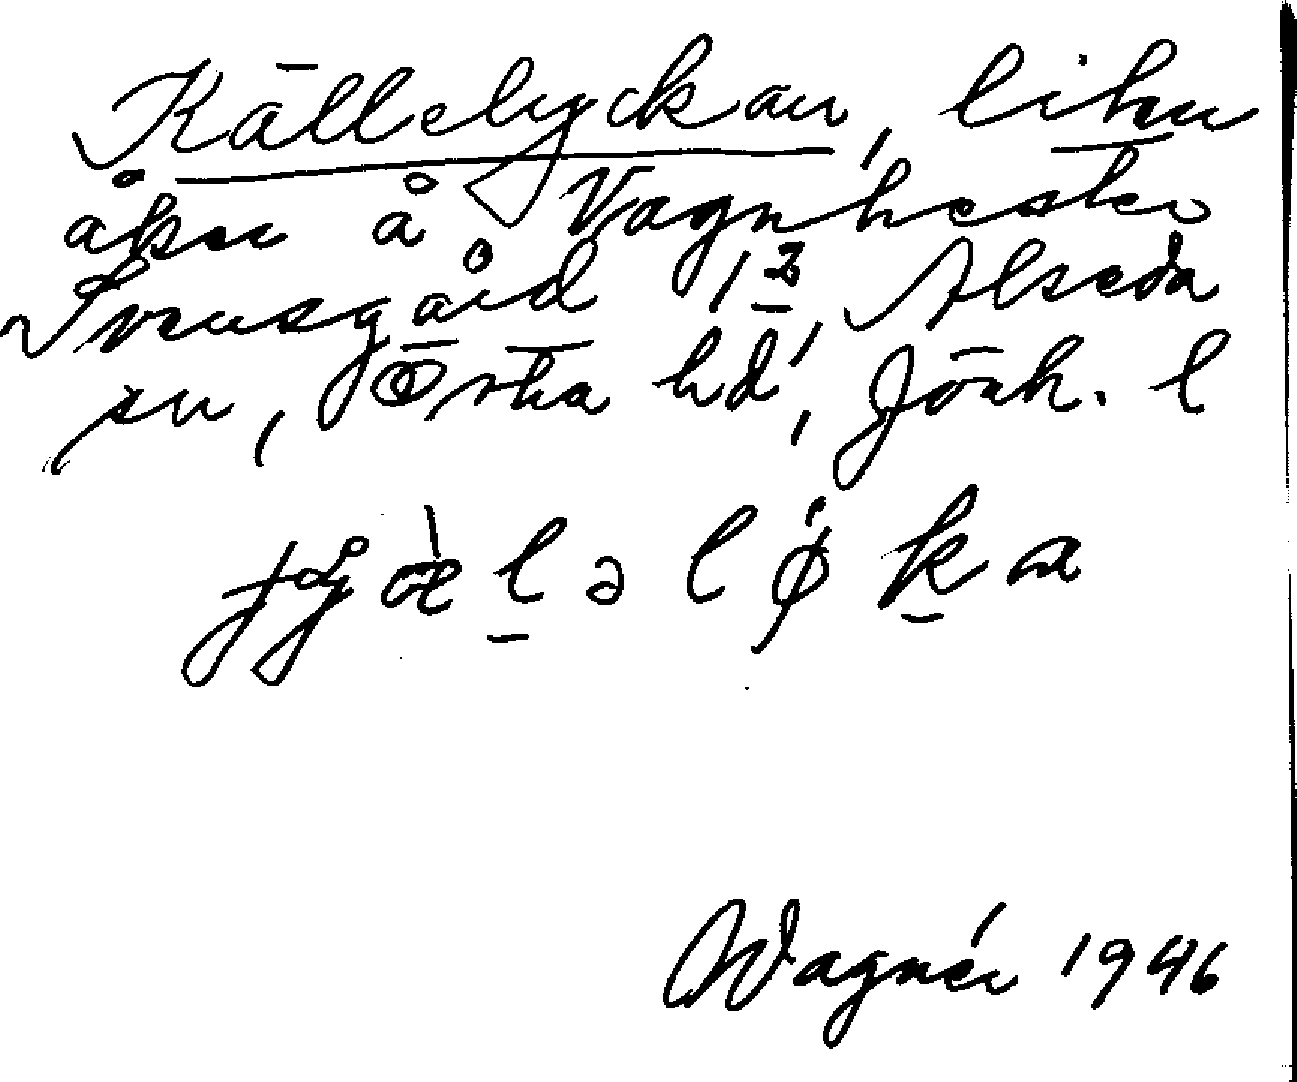 Källelyckan, liten
åker å Vagnhester
Svensgård 1 2, Alseda
sn, Östra hd, Jönk. l
Wagnér 1946